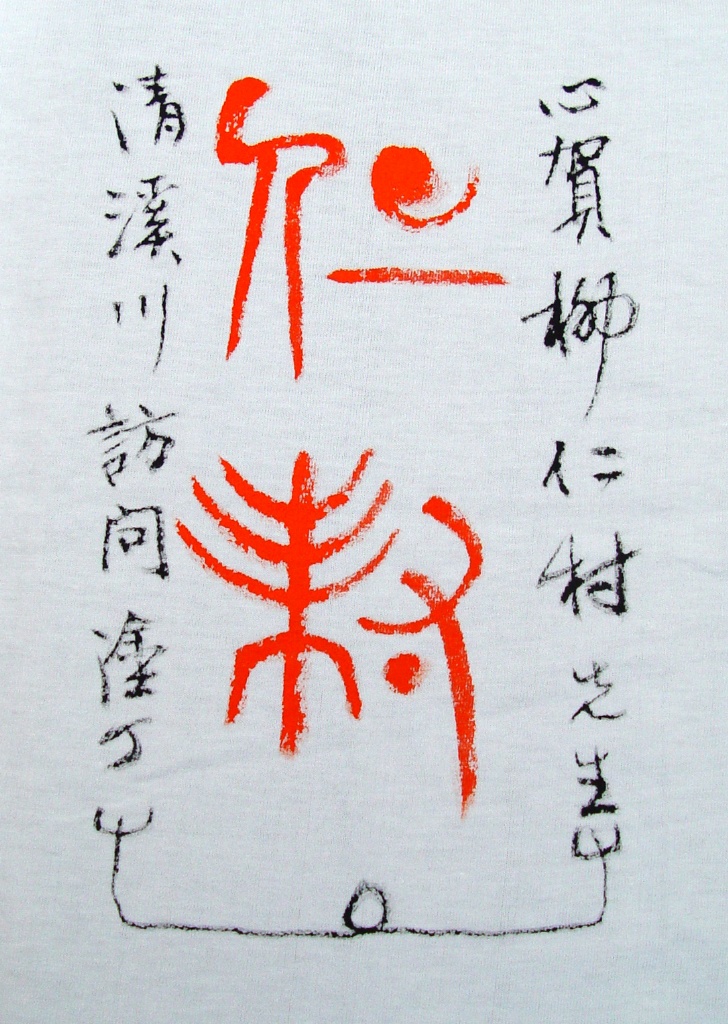 心賀柳仁村先生
仁村
清溪川訪問塗